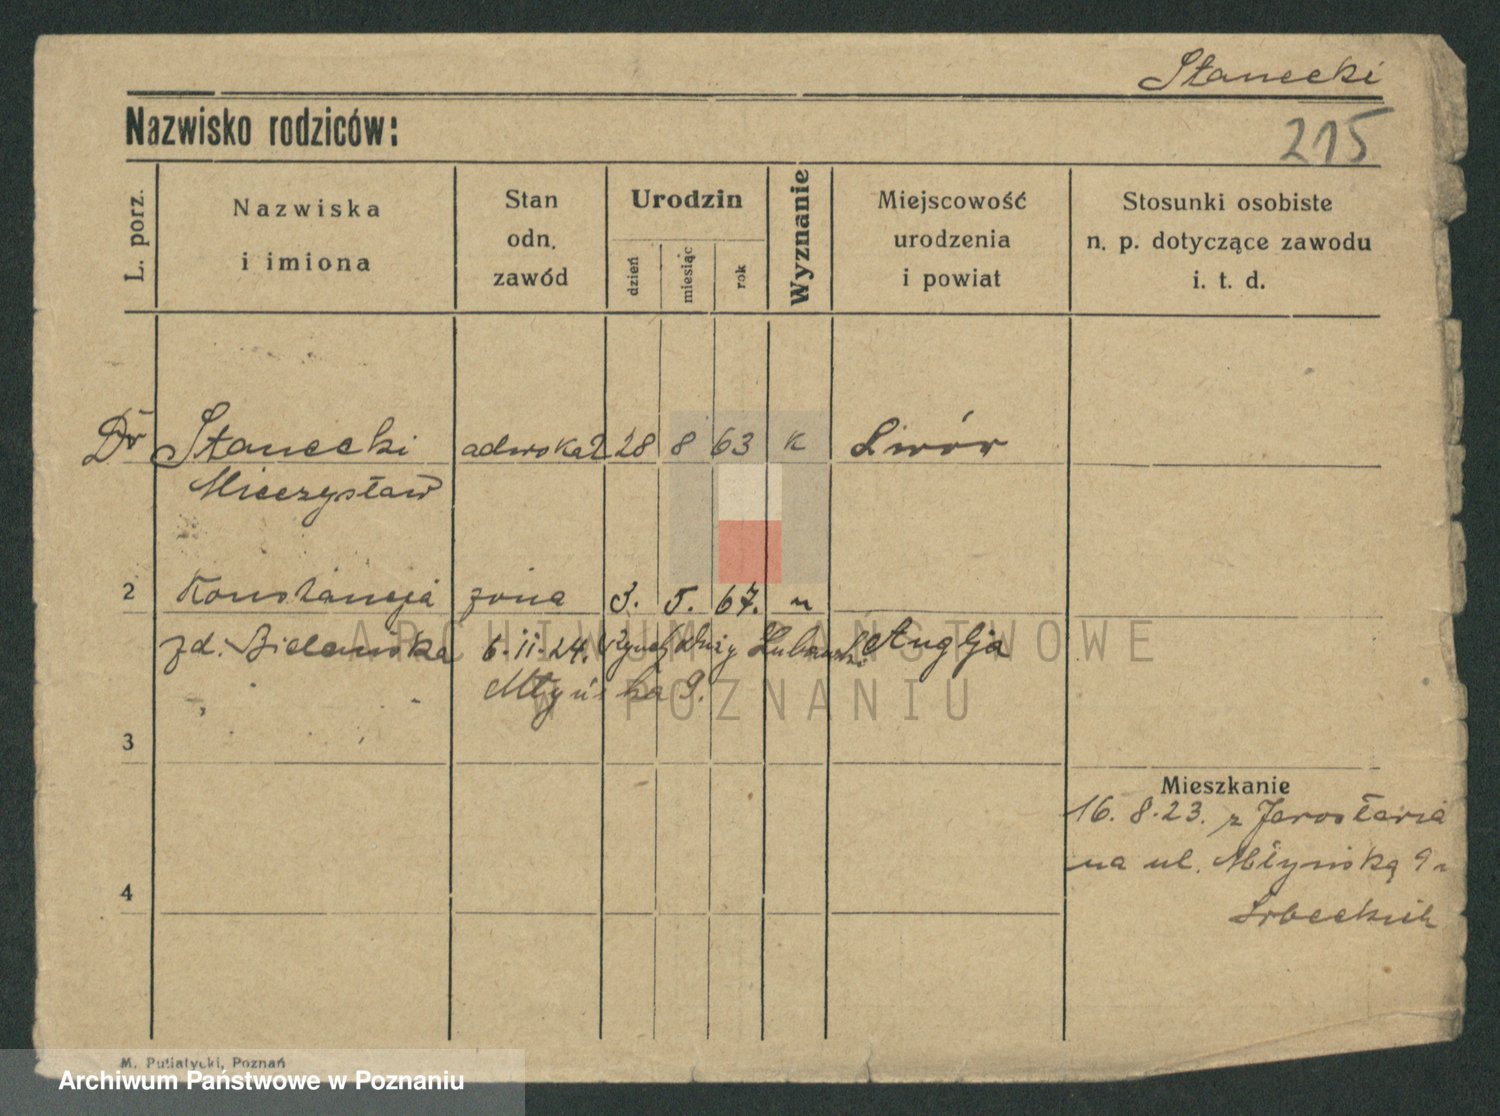 Stanecki
Nazwisko rodziców:
215
L. porz.
Nazwiska
i imiona
Stan
odn.
zawód
Urodzin
dzień
miesiąc
rok
Wyznanie
Miejscowość
urodzenia
i powiat
Stosunki osobiste
n. p. dotyczące zawodu
i. t. d.
Dr Stanecki adwokat 28 8 63 k Lwów
Mieczysław
2 Konstancja żona 3. 5. 67. "
zd. Bielawska 6.11.24. Anglja
Młyńska 9.
3
Mieszkanie
16.8.23. z Jarosławia
na ul. Młyńską 9
4
M. Putiatycki, Poznań
ARCHIWUM PAŃSTWOWE
W POZNANIU
Archiwum Państwowe w Poznaniu